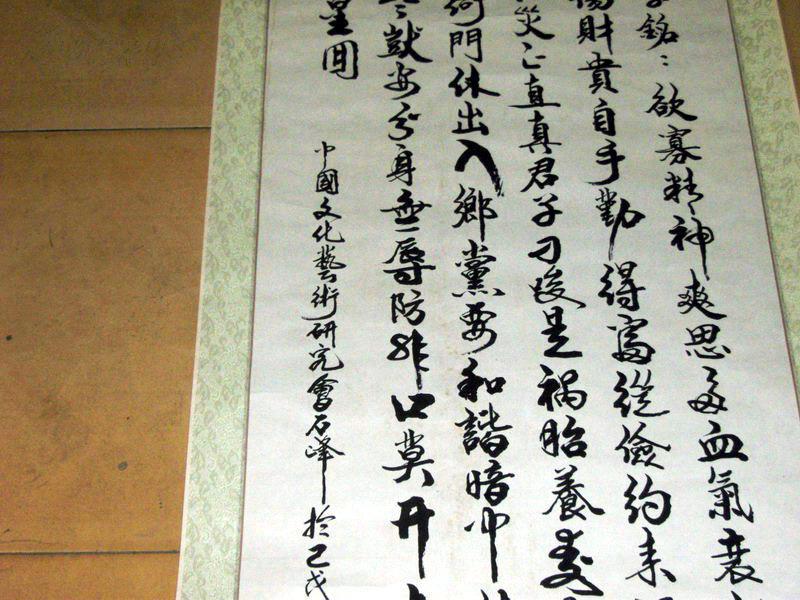 銘〻欲寡精神爽思多血氣衰
傷財貴自手勤得富從儉約来
災正直真君子刁唆是禍胎養
衙門休出入鄉黨要和諧暗中
獃安分身無辱防非口莫开
星回
中國文化藝術研究會石峰於